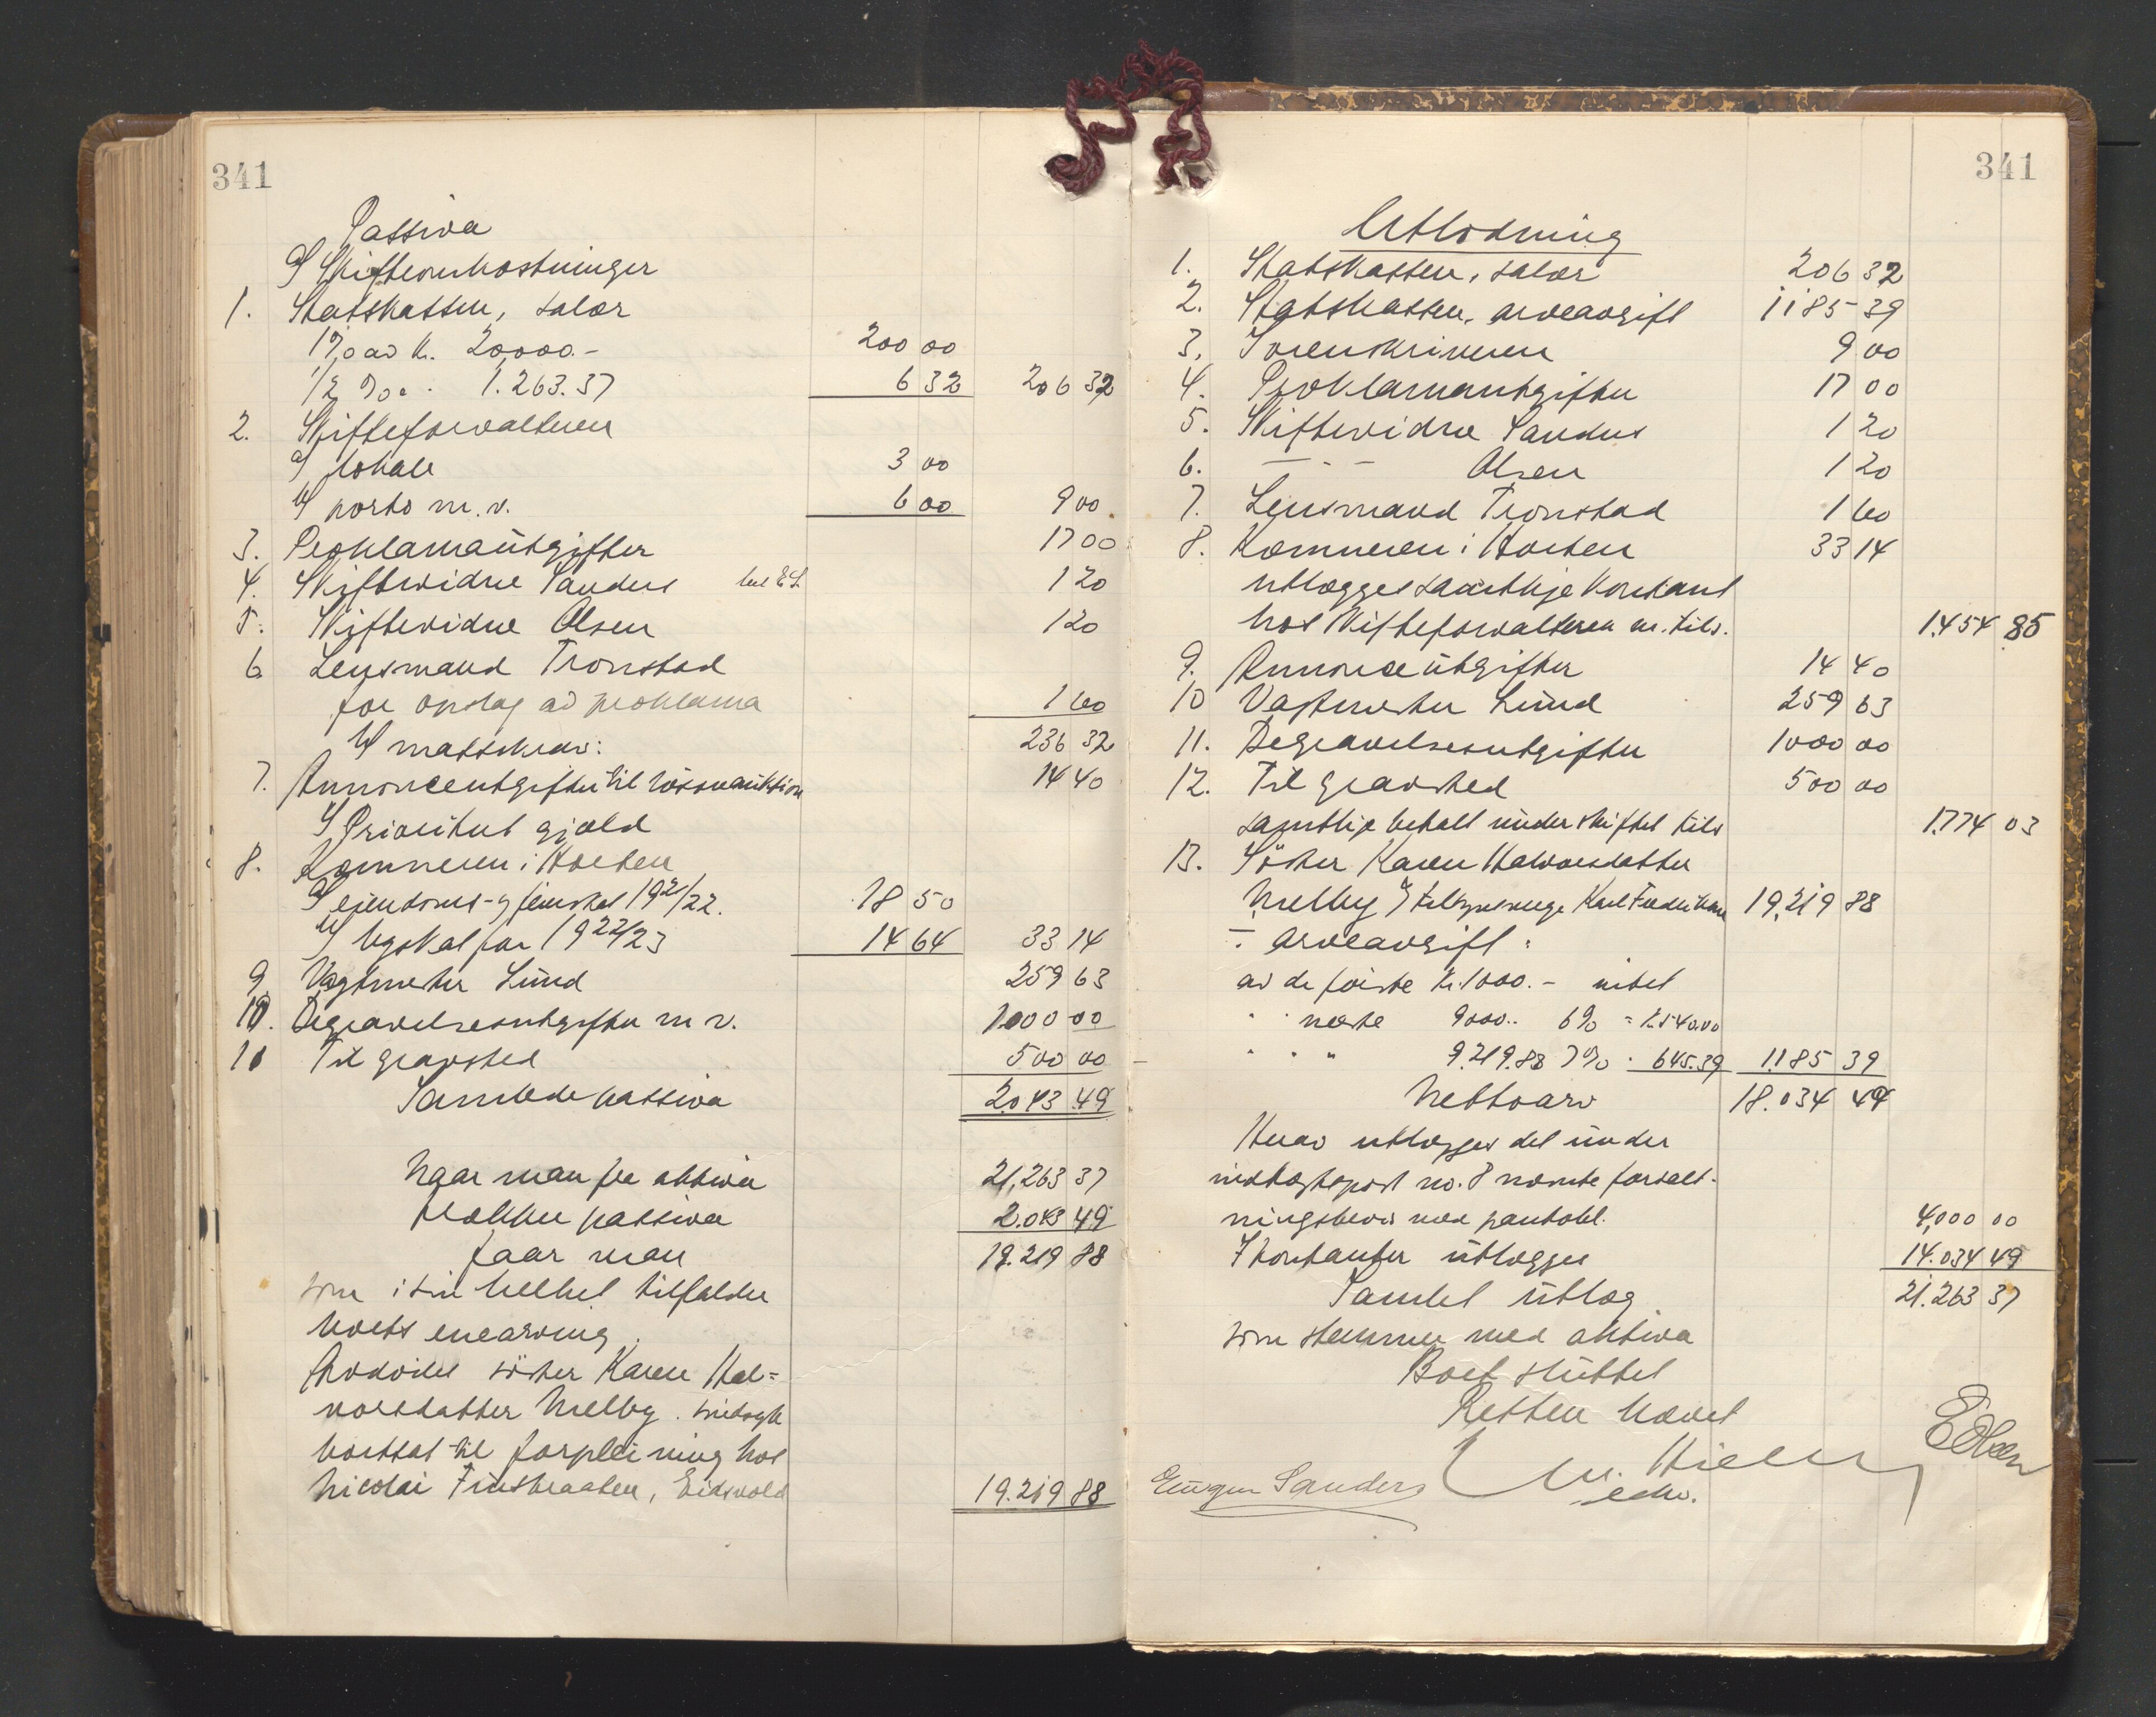 341
Passiva
a/ Skifteomkostninger
1. Statskassen, salær
1% av kr. 20,000.- 200 00
1/2 % " " 1.263.37 6 32 206 32
2. Skifteforvalteren
a/ lokale 3 00
b/ porto m.v. 6 00 9 00
3. Proklamautgifter 17 00
4. Skiftevidne Sanders 1 20
5. Skiftevidne Olsen 1 20
6 Lensmand Tronstad
for opslag av proklama 1 60
b/ massekrav: 236 32
7. Annonceutgifter til løsøreauktion 14 40
c/ Prioritert gjæld
8. Kæmneren i Horten
a/ eiendoms- 1921/22. 18 50
b/ for 1922/23 14 64 33 14
9. Vagtmester Lund 259 63
10. Begravelsesutgifter m v. 1000 00
11 Til gravsted 500 00
Samlede passiva 2.043 49
Naar man fra aktiva 21,263 37
trækker passiva 2.043 49
faar man 19.219 88
som i sin helhet tilfalder
boets enearving
Avdødes søster Karen Hal=
vorsdatter Melby. sindssyk
bortsat til forpleining hos
Nicolai Finsbraaten, Eidsvold 19.219 88
341
Utlodning
1. Statskassen, salær 206 32
2. Statskassen, arveavgift 1185 39
3. Sorenskriveren 9 00
4. Proklamautgifter 17 00
5. Skiftevidne Sanders 1 20
6. — " — Olsen 1 20
7. Lensmand Tronstad 1 60
8. Kæmneren i Horten 33 14
utlægges samtlige kontant
hos skifteforvalteren m. tils. 1.454 85
9. Annonceutgifter 14 40
10 Vagtmester Lund 259 63
11. Begravelsesutgifter 1000 00
12. Til gravsted 500 00
samtlige betalt under skiftet tils 1.774 03
13. Søster Karen Halvorsdatter
Melby v/ tilsynsverge Karl Fredriksen 19,219 88
÷ arveavgift:
av de første kr. 1000.- intet
" " næste 9000.- 6% = kr. 540.00
" " " 9.219.88 7% " 645.39 1185 39
Nettoarv 18.034 49
Herav utlægges det under
indtægtspost no. 8 nævnte forvalt-
ningsbevis med pantobl. 4,000 00
I kontanter utlægges 14.034 49
Samlet utlæg 21.263 37
som stemmer med aktiva
Boet sluttet
Retten hævet
Eugen Sanders
E Olsen